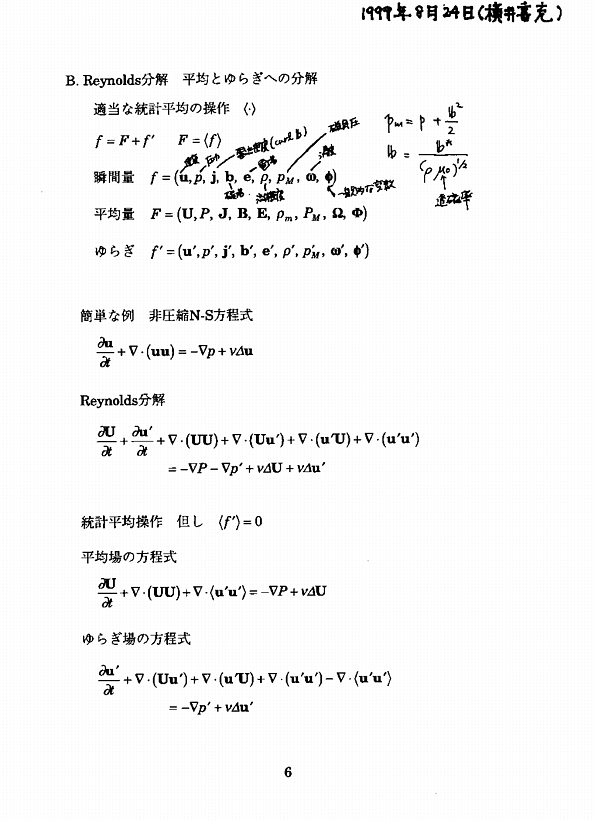 1999年8月24日(横井喜充)
B. Reynolds分解 平均とゆらぎへの分解
適当な統計平均の操作 ⟨·⟩
f = F + f′ F = ⟨f⟩
p_M = p + b²/2
b = b*/(ρμ₀)^{1/2}
透磁率
(curl b)
瞬間量 f = (u, p, j, b, e, ρ, p_M, ω, ϕ)
平均量 F = (U, P, J, B, E, ρ_m, P_M, Ω, Φ)
ゆらぎ f′ = (u′, p′, j′, b′, e′, ρ′, p′_M, ω′, ϕ′)
簡単な例 非圧縮N-S方程式
∂u/∂t + ∇·(uu) = −∇p + νΔu
Reynolds分解
∂U/∂t + ∂u′/∂t + ∇·(UU) + ∇·(Uu′) + ∇·(u′U) + ∇·(u′u′)
= −∇P − ∇p′ + νΔU + νΔu′
統計平均操作 但し ⟨f′⟩ = 0
平均場の方程式
∂U/∂t + ∇·(UU) + ∇·⟨u′u′⟩ = −∇P + νΔU
ゆらぎ場の方程式
∂u′/∂t + ∇·(Uu′) + ∇·(u′U) + ∇·(u′u′) − ∇·⟨u′u′⟩
= −∇p′ + νΔu′
6